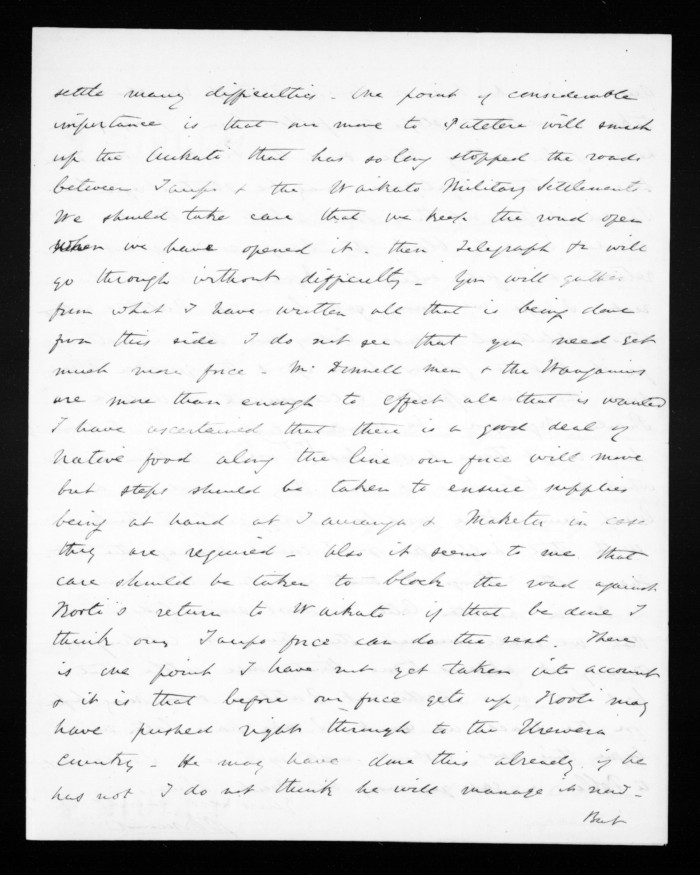 settle many difficulties - One point of considerable
importance is that our move to Patetere will smash
up the Aukati that has so long stopped the roads
between Taupo & the Waikato Military Settlements
We should take care that we keep the road open
when we have opened it - then Telegraph &c will
go through without difficulty - You will gather
from what I have written all that is being done
from this side I do not see that you need get
much more force - McDonnell men & the Wanganuis
are more than enough to effect all that is wanted
I have ascertained that there is a good deal of
native food along the line our force will move
but steps should be taken to ensure supplies
being at hand at Tauranga & Maketu in case
they are required - Also it seems to me that
care should be taken to block the road against
Kooti's return to Waikato if that be done I
think our Taupo force can do the rest. There
is one point I have not yet taken into account
& it is that before our force gets up, Kooti may
have pushed right through to the Urewera
Country - He may have done this already, if he
has not I do not think he will manage it now -
But